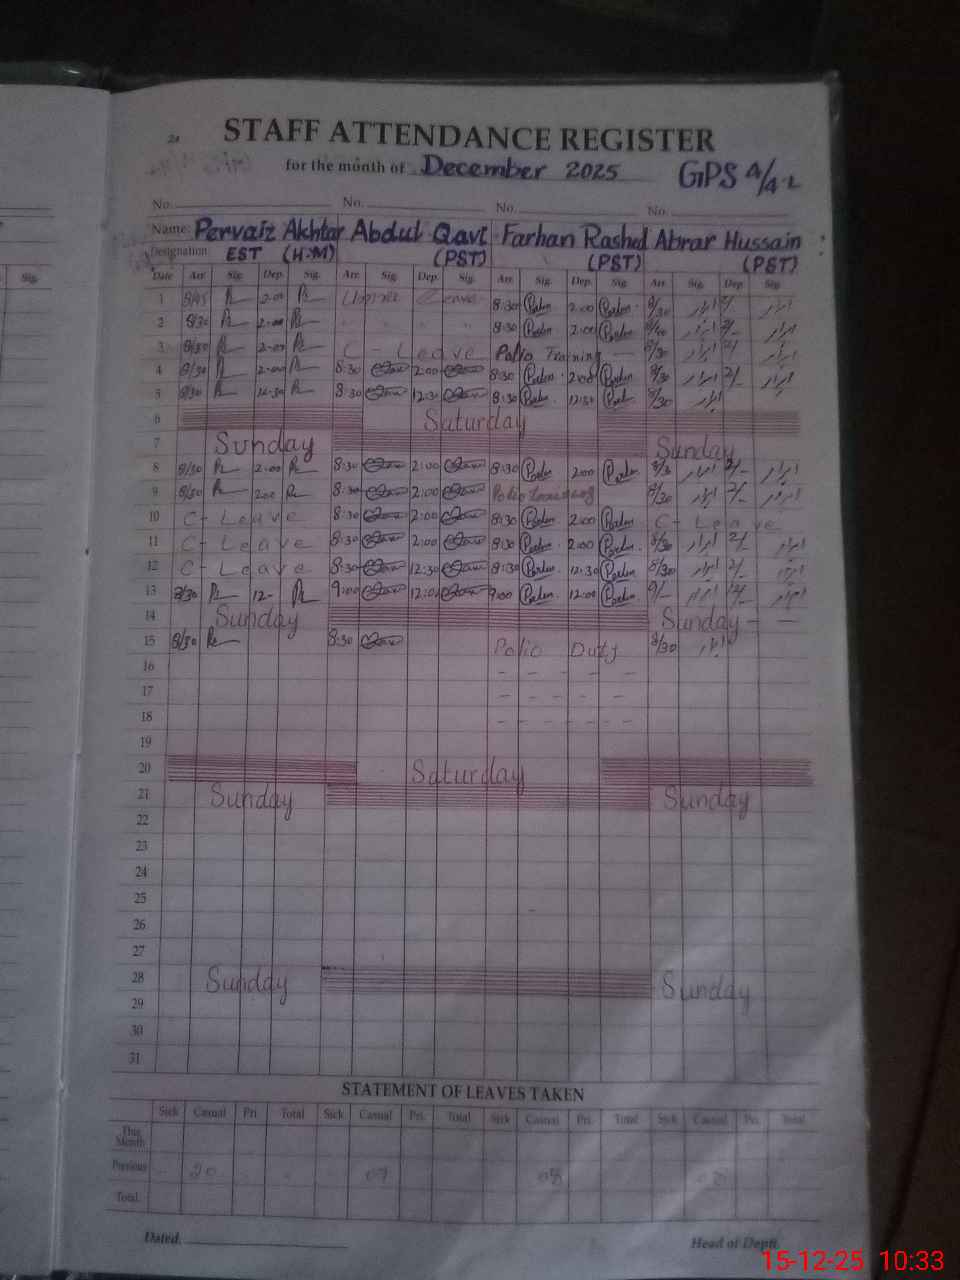 24 STAFF ATTENDANCE REGISTER
for the month of December 2025 GPS 4/4-L
No. No. No. No.
Name: Pervaiz Akhtar Abdul Qavi Farhan Rashid Abrar Hussain
Designation EST (H.M) (PST) (PST) (PST)
Sig.
Date Arr. Sig. Dep. Sig. Arr. Sig. Dep. Sig. Arr. Sig. Dep. Sig. Arr. Sig. Dep. Sig.
1 8/45 2:00 Leave 8:30 2:00 8/30 2/ ابرار ابرار
2 8/30 2:00 8:30 2:00 2/- ابرار ابرار
3 8/30 2:00 C - Leave Polio Training 8/30 2/ ابرار ابرار
4 8/30 2:00 8:30 2:00 8:30 2:00 8/30 2/- ابرار ابرار
5 8/30 12:30 8:30 12:30 8:30 12:30 8/30 ابرار
6 Saturday
7 Sunday Sunday
8 8/30 2:00 8:30 2:00 8:30 2:00 8/30 2/- ابرار ابرار
9 8/30 2:00 8:30 2:00 Polio Training 8/30 2/- ابرار ابرار
10 C - Leave 8:30 2:00 8:30 2:00 C - Leave
11 C - Leave 8:30 2:00 8:30 2:00 8/30 2/- ابرار ابرار
12 C - Leave 8:30 12:30 8:30 12:30 8/30 2/- ابرار ابرار
13 8/30 12- 9:00 12:00 9:00 12:00 9/- 12/- ابرار ابرار
14 Sunday Sunday - -
15 8/30 8:30 Polio Duty 8/30 ابرار
16 - - - - -
17 - - - - -
18 - - - - - -
19
20 Saturday
21 Sunday Sunday
22
23
24
25
26
27
28 Sunday Sunday
29
30
31
STATEMENT OF LEAVES TAKEN
Sick Casual Pri. Total Sick Casual Pri. Total Sick Casual Pri. Total Sick Casual Pri. Total
This Month
Previous 20 07 08
Total
Dated. Head of Deptt.
15-12-25 10:33